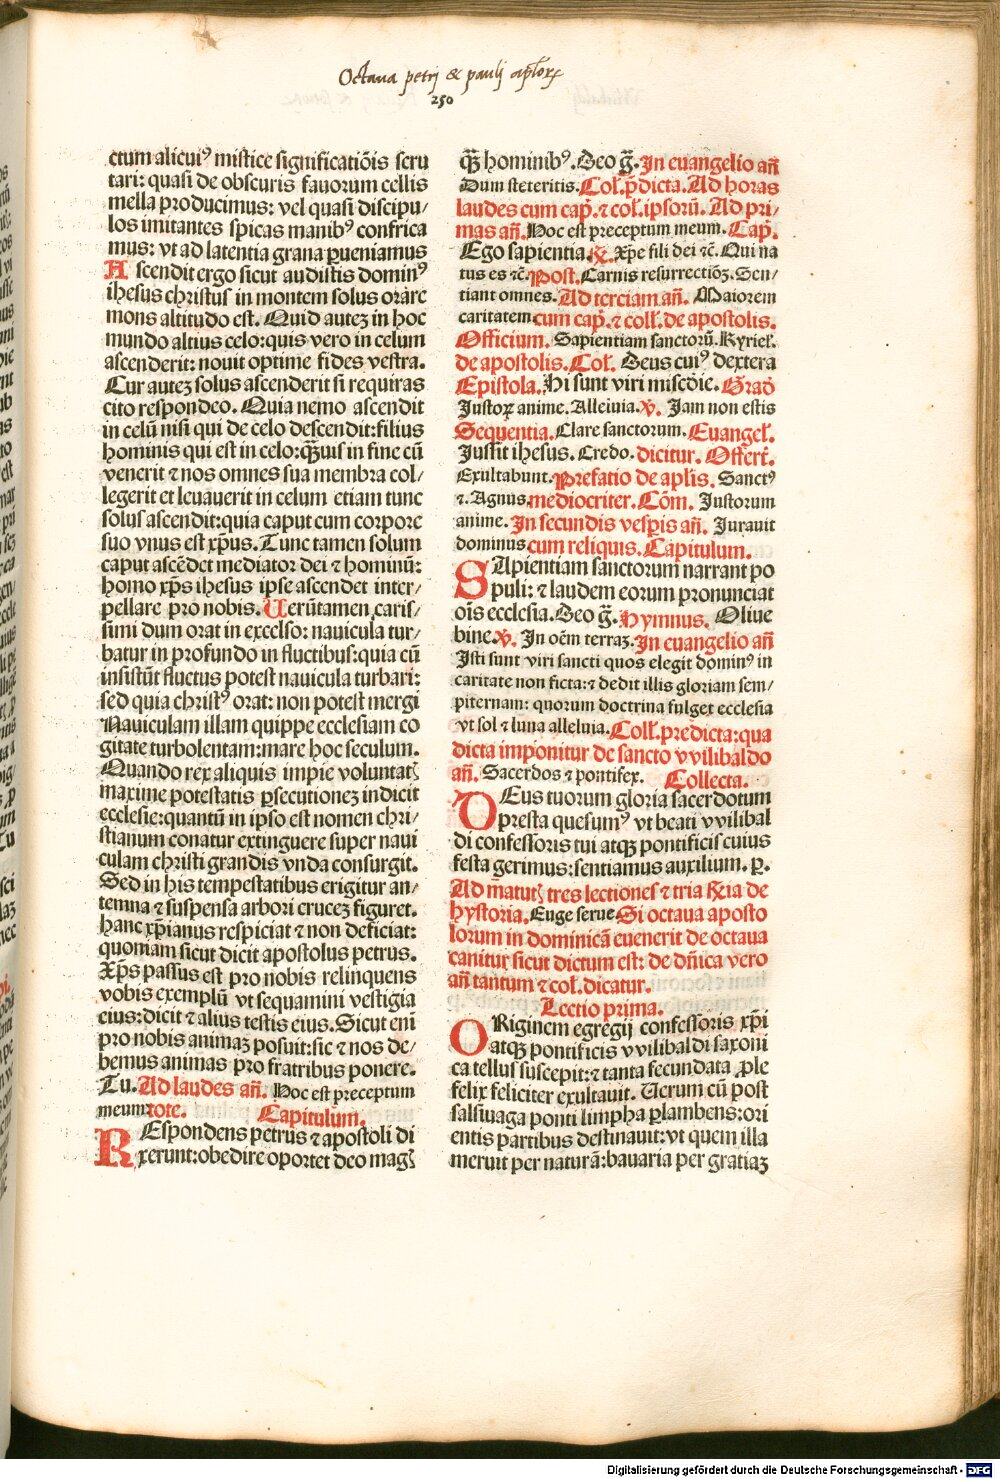 Octaua petrj & paulj aplorꝝ
250
ctum alicuiꝰ mistice significatiōis scru
tari: quasi de obscuris fauorum cellis
mella producimus: vel quasi discipu/
los imitantes spicas manibꝰ confrica
mus: vt ad latentia grana ꝑueniamus
Ascendit ergo sicut audistis dominꝰ
ihesus christus in montem solus orare
mons altitudo est. Quid autez in hoc
mundo altius celo: quis vero in celum
ascenderit: nouit optime fides vestra.
Cur autez solus ascenderit si requiras
cito respondeo. Quia nemo ascendit
in celū nisi qui de celo descendit: filius
hominis qui est in celo: q̄ꝫuis in fine cū
venerit ⁊ nos omnes sua membra col/
legerit et leuauerit in celum etiam tunc
solus ascendit: quia caput cum corpore
suo vnus est xp̄us. Tunc tamen solum
caput ascēdet mediator dei ⁊ hominū:
homo xp̄s ihesus ipse ascendet inter/
pellare pro nobis. Uerūtamen caris/
simi dum orat in excelso: nauicula tur/
batur in profundo in fluctibus: quia cū
insistūt fluctus potest nauicula turbari:
sed quia christꝰ orat: non potest mergi
Nauiculam illam quippe ecclesiam co
gitate turbolentam: mare hoc seculum.
Quando rex aliquis impie voluntatꝭ
maxime potestatis ꝑsecutionez indicit
ecclesie: quantū in ipso est nomen chri/
stianum conatur extinguere super naui
culam christi grandis vnda consurgit.
Sed in his tempestatibus erigitur an/
temna ⁊ suspensa arbori crucez figuret.
hanc xp̄ianus respiciat ⁊ non deficiat:
quoniam sicut dicit apostolus petrus.
Xp̄s passus est pro nobis relinquens
vobis exemplū vt sequamini vestigia
eius: dicit ⁊ alius testis eius. Sicut eni
pro nobis animaz posuit: sic ⁊ nos de/
bemus animas pro fratribus ponere.
Tu. Ad laudes an̄. Hoc est preceptum
meum tote. Capitulum.
REspondens petrus ⁊ apostoli di
xerunt: obedire oportet deo magꝭ
q̄ꝫ hominibꝰ. Deo gr̄. In euangelio an̄
Dum steteritis. Col. p̄dicta. Ad horas
laudes cum cap̄. ⁊ col. ipsorū. Ad pri/
mas an̄. Hoc est preceptum meum. Cap̄.
Ego sapientia. ℟. Xp̄e fili dei ⁊c̄. Qui na
tus es ⁊c̄. Post. Carnis resurrectiōꝫ. Sen/
tiant omnes. Ad terciam an̄. Maiorem
caritatem cum cap̄. ⁊ coll. de apostolis.
Officium. Sapientiam sanctorū. Kyriel.
de apostolis. Col. Deus cuiꝰ dextera
Epistola. Hi sunt viri misc̄die. Grad̄
Justoꝝ anime. Alleluia. ℣. Jam non estis
Sequentia. Clare sanctorum. Euangel.
Jussit ihesus. Credo. dicitur. Offert̄.
Exultabunt. Prefatio de apl̄is. Sanctꝰ
⁊. Agnus. mediocriter. Cōm. Justorum
anime. In secundis vesꝑis an̄. Jurauit
dominus cum reliquis. Capitulum.
SApientiam sanctorum narrant po
puli: ⁊ laudem eorum pronunciat
ois ecclesia. Deo gr̄. Hymnus. Oliue
bine. ℣. In oēm terraz. In euangelio an̄
Isti sunt viri sancti quos elegit dominꝰ in
caritate non ficta: ⁊ dedit illis gloriam sem/
piternam: quorum doctrina fulget ecclesia
vt sol ⁊ luna alleluia. Coll. predicta: qua
dicta imponitur de sancto vvilibaldo
an̄. Sacerdos ⁊ pontifex. Collecta.
DEus tuorum gloria sacerdotum
presta quesumꝰ vt beati vvilibal
di confessoris tui atqꝫ pontificis cuius
festa gerimus: sentiamus auxilium. ꝑ.
Ad matutꝭ tres lectiones ⁊ tria ℟ia de
hystoria. Euge serue Si octaua aposto
lorum in dominicā euenerit de octaua
canitur sicut dictum est: de dn̄ica vero
an̄ tantum ⁊ col. dicatur.
Lectio prima.
ORiginem egregij confessoris xp̄i
atqꝫ pontificis vvilibaldi saxoni
ca tellus suscepit: ⁊ tanta fecundata ꝓle
felix feliciter exultauit. Uerum cū post
salsiuaga ponti limpha ꝑlambens: ori
entis partibus destinauit: vt quem illa
meruit per naturā: bauaria per gratiaz
Digitalisierung gefördert durch die Deutsche Forschungsgemeinschaft - DFG